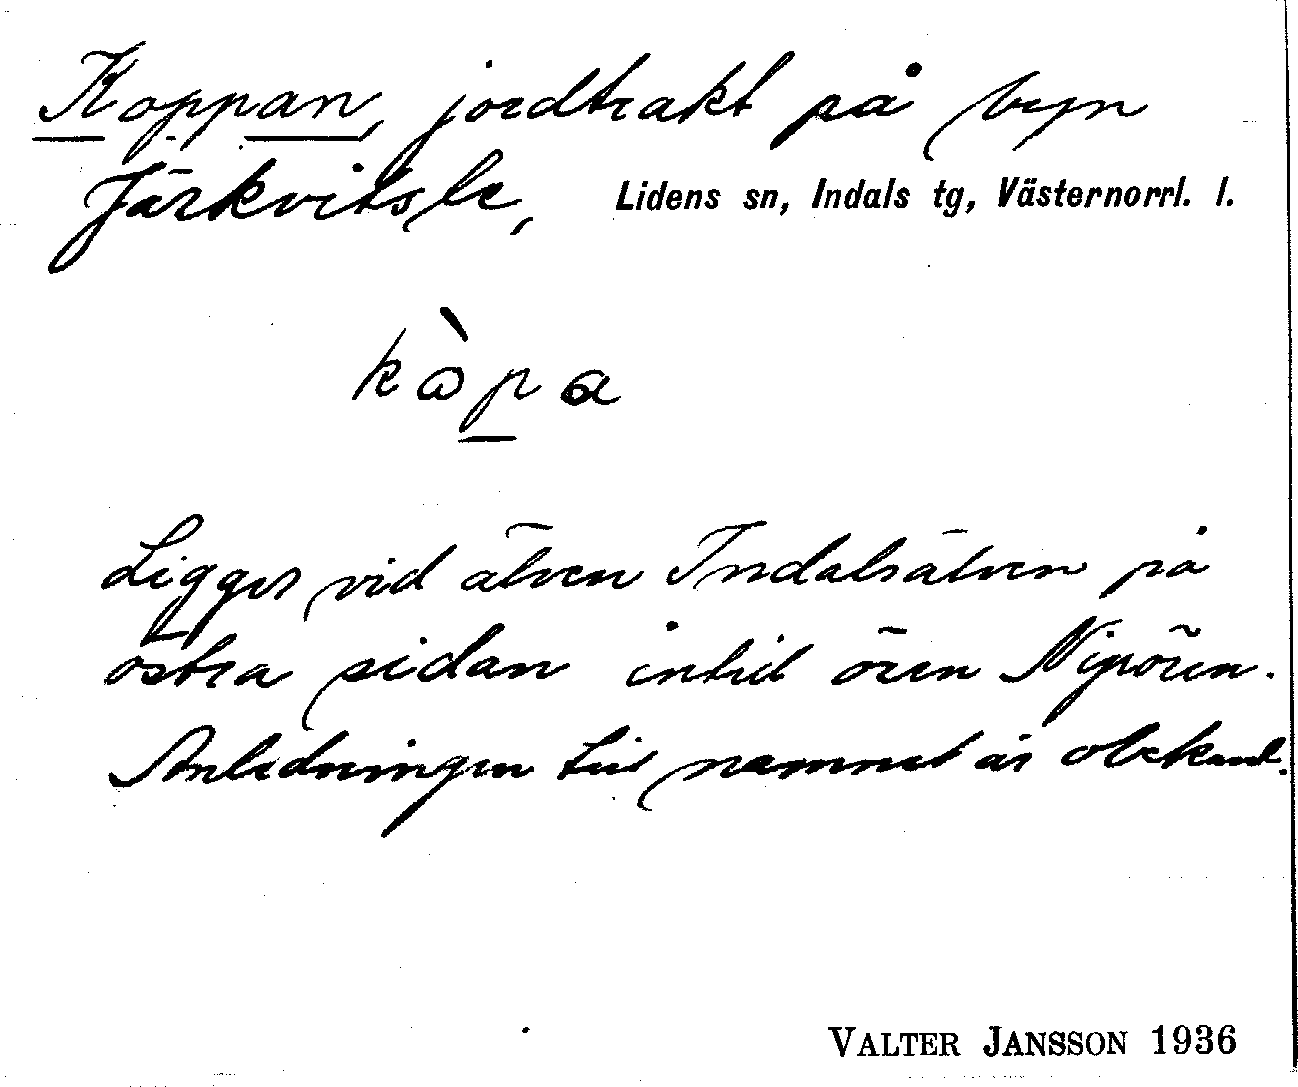 Koppan, jordtrakt på byn
Järkvitsle, Lidens sn, Indals tg, Västernorrl. l.
kòpa
Ligger vid älven Indalsälven på
östra sidan intill ören Nipören.
Anledningen till namnet är obekant.
VALTER JANSSON 1936